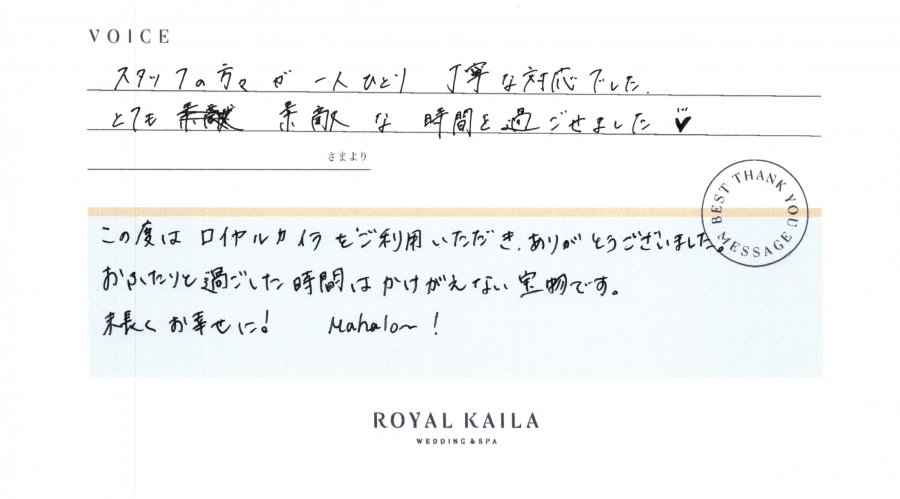 VOICE
スタッフの方々が一人ひとり 丁寧な対応でした.
とても 素敵な 時間を過ごせました♥
さまより
BEST THANK YOU MESSAGE
この度は ロイヤルカイラをご利用いただき、ありがとうございました。
おふたりと過ごした時間はかけがえない宝物です。
末長くお幸せに! Mahalo〜!
ROYAL KAILA
WEDDING & SPA